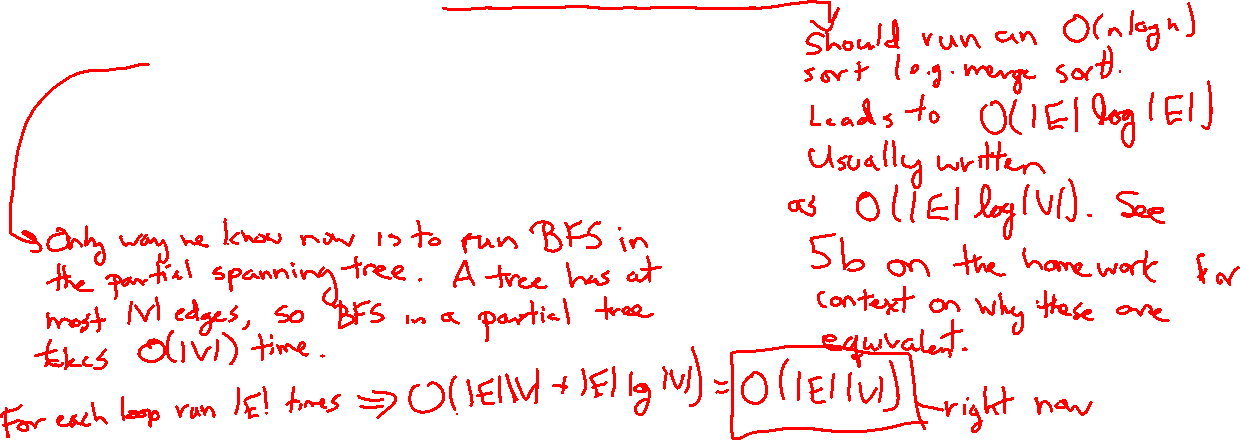 Should run an O(n log n)
sort (e.g. merge sort).
Leads to O(|E| log |E|)
Usually written
as O(|E| log |V|). See
5b on the homework for
context on why these are
equivalent.
Only way we know now is to run BFS in
the partial spanning tree. A tree has at
most |V| edges, so BFS in a partial tree
takes O(|V|) time.
For each loop run |E| times ⇒ O(|E||V| + |E| lg |V|) = O(|E||V|) right now